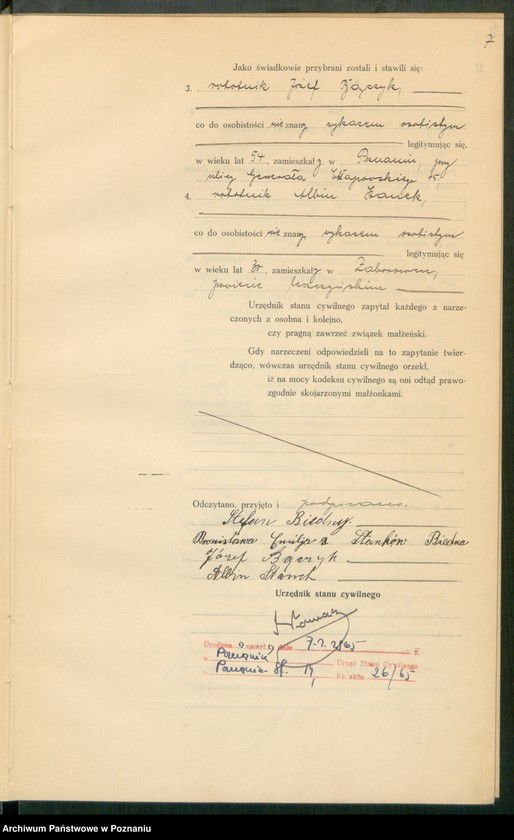 7
Jako świadkowie przybrani zostali i stawili się:
3. robotnik Józef
co do osobistości nieznany wykazem osobistym
legitymując się.
w wieku lat 54, zamieszkały w Poznaniu, przy
ulicy Generała 15,
4. robotnik Albin
co do osobistości nieznany wykazem osobistym
legitymując się
w wieku lat zamieszkały w
powiecie
Urzędnik stanu cywilnego zapytał każdego z narze-
czonych z osobna i kolejno,
czy pragną zawrzeć związek małżeński.
Gdy narzeczeni odpowiedzieli na to zapytanie twier-
dząco, wówczas urzędnik stanu cywilnego orzekł,
iż na mocy kodeksu cywilnego są oni odtąd prawo-
zgodnie skojarzonymi małżonkami.
Odczytano, przyjęto i podpisano.
Stefan Biedny.
Bronisława Biedna
Józef
Albin
Urzędnik stanu cywilnego
zmarł dnia 1965 r.
w Poznaniu Urząd Stanu Cywilnego
Nr. aktu 26/65
Archiwum Państwowe w Poznaniu